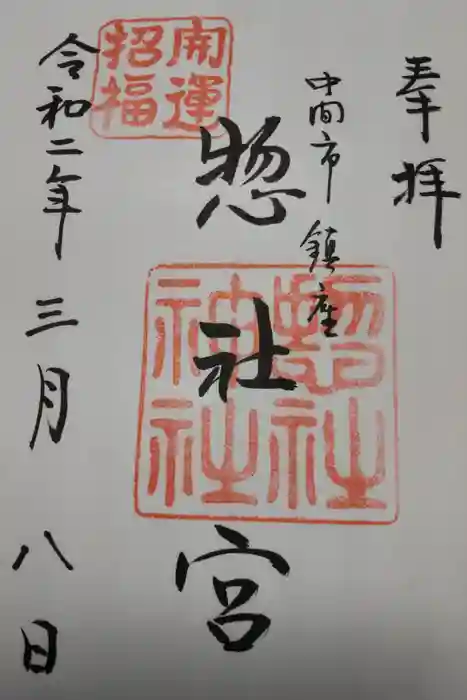 奉拝
中間市 鎮座
惣社宮
開運
招福
惣社
神社
令和二年 三月 八日